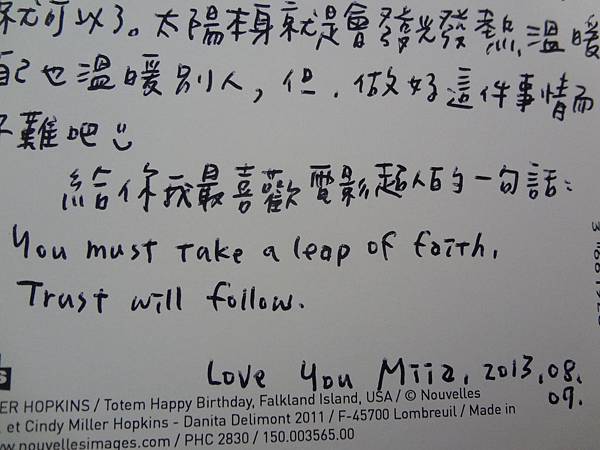 就可以了。太陽本身就是會發光發熱,溫暖
自己也溫暖別人,但,做好這件事情而
不難吧
給你我最喜歡電影超人的一句話:
You must take a leap of faith.
Trust will follow.
Love You Miia, 2013.08.
09.
ER HOPKINS / Totem Happy Birthday, Falkland Island, USA / © Nouvelles
et Cindy Miller Hopkins - Danita Delimont 2011 / F-45700 Lombreuil / Made in
www.nouvellesimages.com / PHC 2830 / 150.003565.00